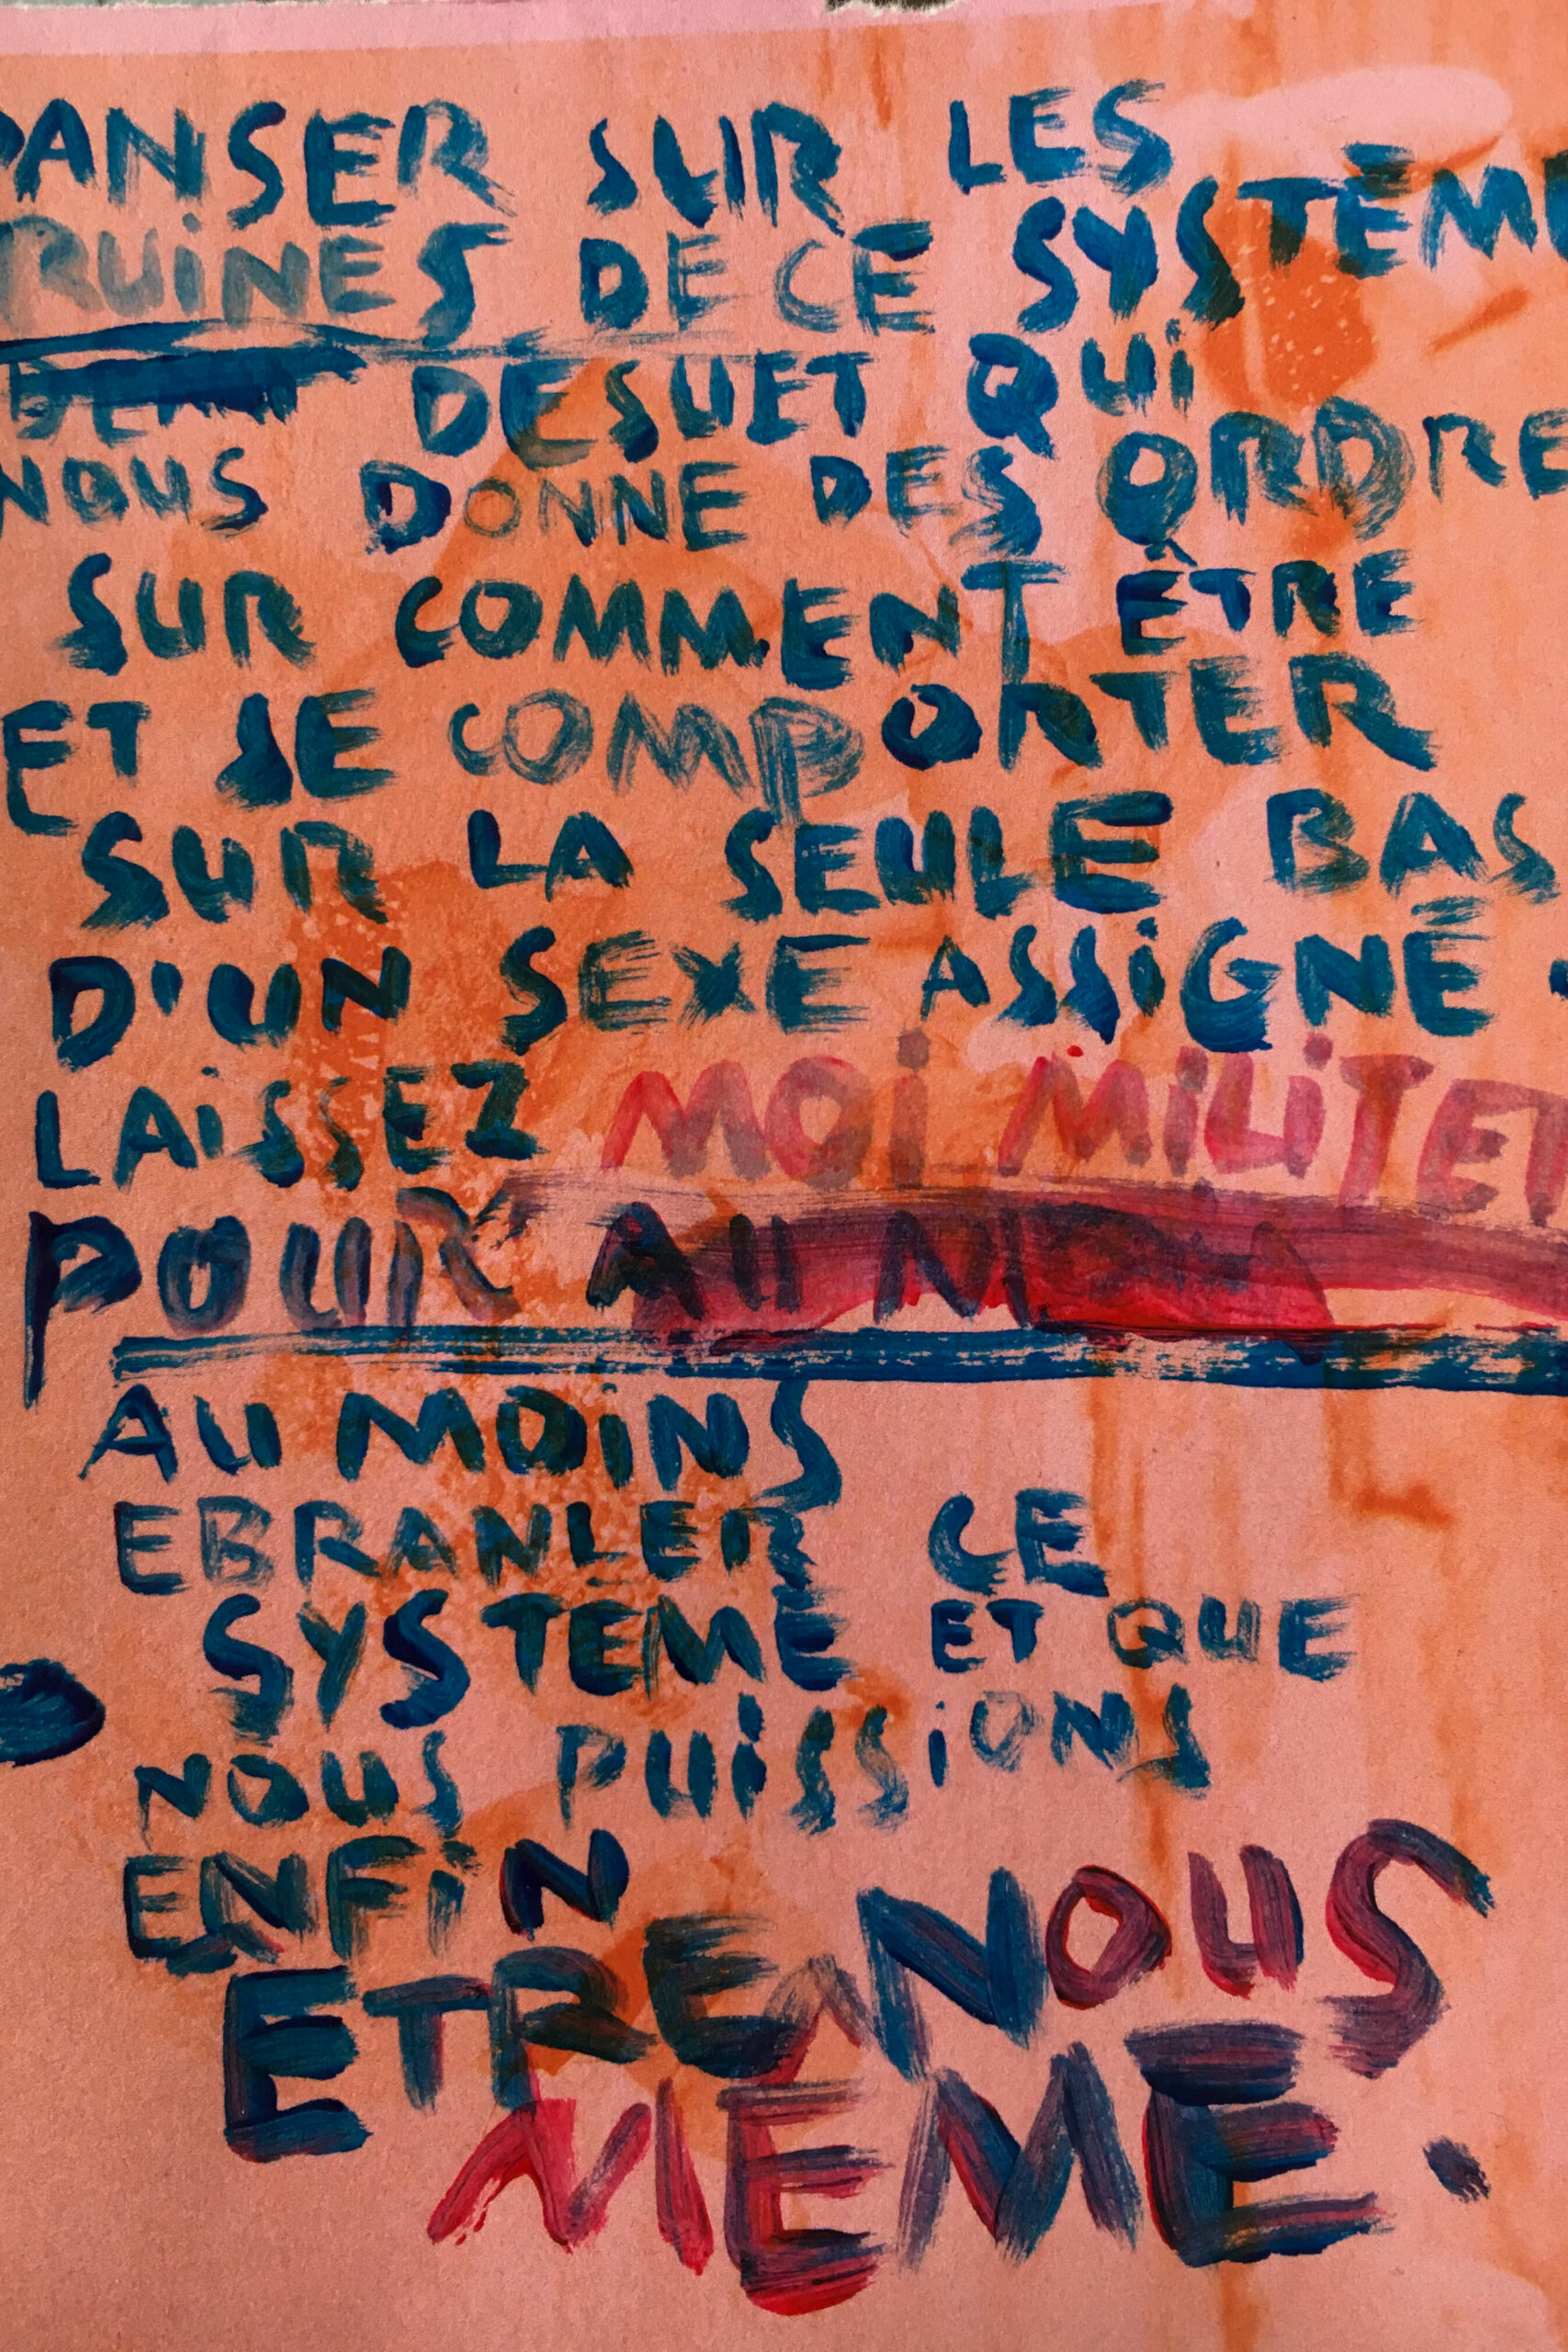 DANSER SUR LES
RUINES DE CE SYSTÈME
DESUET QUI
NOUS DONNE DES ORDRE
SUR COMMENT ÊTRE
ET SE COMPORTER
SUR LA SEULE BAS
D'UN SEXE ASSIGNÉ.
LAISSEZ MOI MILITER
POUR AU
AU MOINS
EBRANLER CE
SYSTEME ET QUE
NOUS PUISSIONS
ENFIN
ETRE NOUS
MÊME.